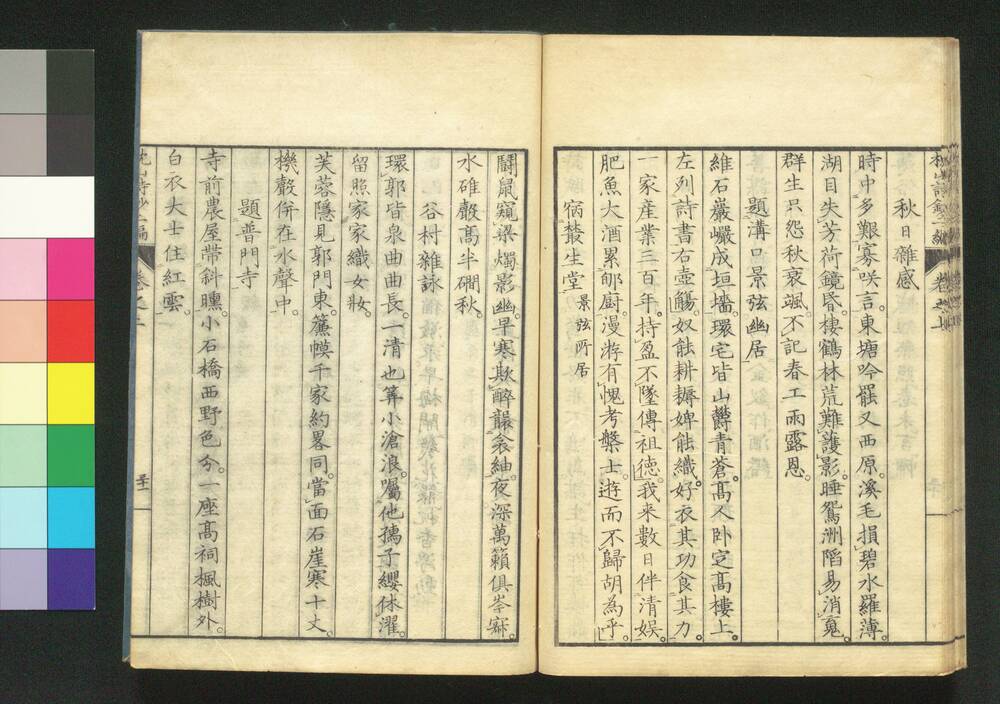 秋日雜感
時中多艱寡咲言。東塘吟罷又西原。溪毛損碧水羅薄。
湖目失芳荷鏡昏。棲鶴林荒難護影。睡鴛洲陷易消魂。
群生只怨秋哀颯。不記春工雨露恩。
題溝口景弦幽居
維石巖巖成垣墻。環宅皆山欝青蒼。高人卧定高樓上。
左列詩書右壺觴。奴能耕耨婢能織。好衣其功食其力。
一家産業三百年。持盈不墜傳祖德。我来數日伴清娯。
肥魚大酒累郇厨。漫游有愧考槃士。遊而不歸胡為乎。
宿叢生堂 景弦所居
鬪鼠窺梁燭影幽。早寒欺醉襲衾紬。夜深萬籟俱岑寂。
水碓轂高半磵秋。
谷村雜詠
環郭皆泉曲曲長。一清也筭小滄浪。囑他孺子纓休濯。
留照家家織女妝。
芙蓉隱見郭門東。簾幙千家約畧同。當面石崖寒十丈。
機轂併在水聲中。
題普門寺
寺前農屋帶斜曛。小石橋西野色分。一座高祠楓樹外。
白衣大士住紅雲。
卷之上